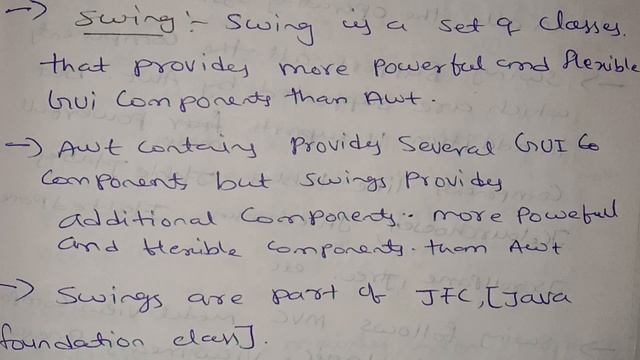 → Swing :- Swing is a set of classes.
that provides more powerful and flexible
Gui Components than Awt.
→ Awt contains provides several GUI Co
Components but swings provides
additional Components. more poweful
and flexible components. than Awt
→ Swings are part of JFC, [Java
foundation class].